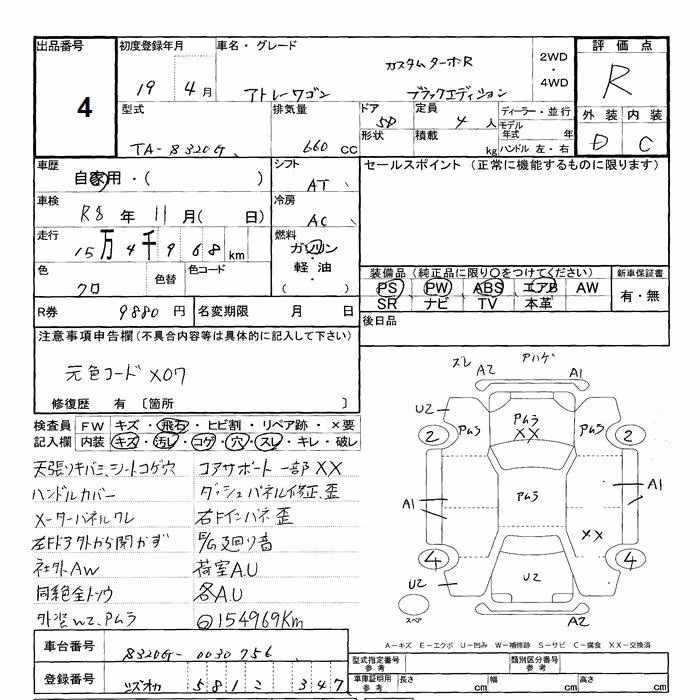 出品番号 4
初度登録年月 19年 4月
車名・グレード カスタムターボR
アトレーワゴン ブラックエディション
2WD ・ 4WD
評価点 R
外装 D 内装 C
型式 TA-S320G
排気量 660 CC
ドア 5D 形状
定員 4人 積載 kg
ディーラー・並行
モデル年式 年
ハンドル 左・右
車歴 自家用・( )
シフト AT
セールスポイント (正常に機能するものに限ります)
車検 R8年 11月( 日)
冷房 AC
走行 15万4千968km
燃料 ガソリン・軽油・( )
色 クロ 色替 色コード
装備品 (純正品に限り○をつけてください)
PS PW ABS エアB AW
SR ナビ TV 本革
新車保証書 有・無
R券 9880円
名変期限 月 日
後日品
注意事項申告欄(不具合内容等は具体的に記入して下さい)
元色コード X07
修復歴 有 〔箇所 〕
検査員記入欄
FW キズ・飛石・ヒビ割・リペア跡・×要
内装 キズ・汚レ・コゲ・穴・スレ・キレ・破レ
天張リキバミ、シートコゲ穴 コアサポート一部XX
ハンドルカバー ダッシュパネル修正、歪
メーターパネルワレ 右Fインパネ歪
左Fドア外から開かず E/G廻り音
社外AW 荷室A.U
同色全トソウ 各A.U
外装W2、Pムラ 154969Km
ズレ A2 Aハゲ A1
U2 Pムラ Pムラ XX Pムラ
2 2
A1 Pムラ A1
XX
4 4
U2 U2
スペア A2
A-キズ E-エクボ U-凹み W-補修跡 S-サビ C-腐食 XX-交換済
車台番号 S320G-0030756
登録番号 シズオカ 581 ミ 347
型式指定番号 参考 類別区分番号 参考
車庫証明用 参考 長さ cm 幅 cm 高さ cm